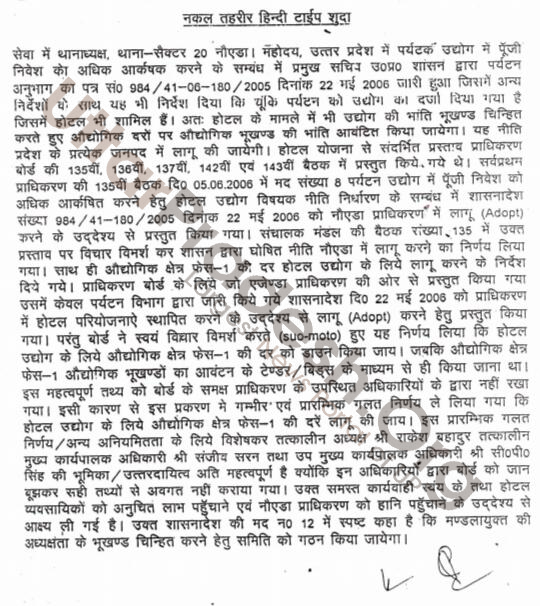 नकल तहरीर हिन्दी टाईप शुदा
सेवा में थानाध्यक्ष, थाना–सैक्टर 20 नौएडा। महोदय, उत्तर प्रदेश में पर्यटक उद्योग में पूँजी
निवेश का अधिक आर्कषक करने के सम्बंध में प्रमुख सचिव उ0प्र0 शासन द्वारा पर्यटन
अनुभाग का पत्र सं0 984/41-06-180/2005 दिनांक 22 मई 2006 जारी हुआ जिसमें अन्य
निर्देशों के साथ यह भी निर्देश दिया कि चूंकि पर्यटन को उद्योग का दर्जा दिया गया है
जिसमें होटल भी शामिल हैं। अतः होटल के मामले में भी उद्योग की भांति भूखण्ड चिन्हित
करते हुए औद्योगिक दरों पर औद्योगिक भूखण्ड की भांति आवंटित किया जायेगा। यह नीति
प्रदेश के प्रत्येक जनपद में लागू की जायेगी। होटल योजना से संदर्भित प्रस्ताव प्राधिकरण
बोर्ड की 135वीं, 136वीं, 137वीं, 142वीं एवं 143वीं बैठक में प्रस्तुत किये गये थे। सर्वप्रथम
प्राधिकरण की 135वीं बैठक दि0 05.06.2006 में मद संख्या 8 पर्यटन उद्योग में पूँजी निवेश को
अधिक आकर्षित करने हेतु होटल उद्योग विषयक नीति निर्धारण के सम्बंध में शासनादेश
संख्या 984/41-180/2005 दिनांक 22 मई 2006 को नौएडा प्राधिकरण में लागू (Adopt)
करने के उद्देश्य से प्रस्तुत किया गया। संचालक मंडल की बैठक संख्या 135 में उक्त
प्रस्ताव पर विचार विमर्श कर शासन द्वारा घोषित नीति नौएडा में लागू करने का निर्णय लिया
गया। साथ ही औद्योगिक क्षेत्र फेस–1 की दर होटल उद्योग के लिये लागू करने के निर्देश
दिये गये। प्राधिकरण बोर्ड के लिये जो एजेण्डा प्राधिकरण की ओर से प्रस्तुत किया गया
उसमें केवल पर्यटन विभाग द्वारा जारी किये गये शासनादेश दि0 22 मई 2006 को प्राधिकरण
में होटल परियोजनाऐं स्थापित करने के उद्देश्य से लागू (Adopt) करने हेतु प्रस्तुत किया
गया। परंतु बोर्ड ने स्वयं विचार विमर्श करते (suo-moto) हुए यह निर्णय लिया कि होटल
उद्योग के लिये औद्योगिक क्षेत्र फेस–1 की दर को डाउन किया जाय। जबकि औद्योगिक क्षेत्र
फेस–1 औद्योगिक भूखण्डों का आवंटन के टेण्डर/बिड्स के माध्यम से ही किया जाना था।
इस महत्वपूर्ण तथ्य को बोर्ड के समक्ष प्राधिकरण के उपस्थित अधिकारियों के द्वारा नहीं रखा
गया। इसी कारण से इस प्रकरण मे गम्भीर एवं प्रारम्भिक गलत निर्णय ले लिया गया कि
होटल उद्योग के लिये औद्योगिक क्षेत्र फेस–1 की दरें लागू की जाय। इस प्रारम्भिक गलत
निर्णय/अन्य अनियमितता के लिये विशेषकर तत्कालीन अध्यक्ष श्री राकेश बहादुर तत्कालीन
मुख्य कार्यपालक अधिकारी श्री संजीव सरन तथा उप मुख्य कार्यपालक अधिकारी श्री सी0पी0
सिंह की भूमिका/उत्तरदायित्व अति महत्वपूर्ण है क्योंकि इन अधिकारियों द्वारा बोर्ड को जान
बूझकर सही तथ्यों से अवगत नहीं कराया गया। उक्त समस्त कार्यवाही स्वयं के तथा होटल
व्यवसायिकों को अनुचित लाभ पहुँचाने एवं नौएडा प्राधिकरण को हानि पहुँचाने के उद्देश्य से
आक्ष्य ली गई है। उक्त शासनादेश की मद न0 12 में स्पष्ट कहा है कि मण्डलायुक्त की
अध्यक्षता के भूखण्ड चिन्हित करने हेतु समिति को गठन किया जायेगा।